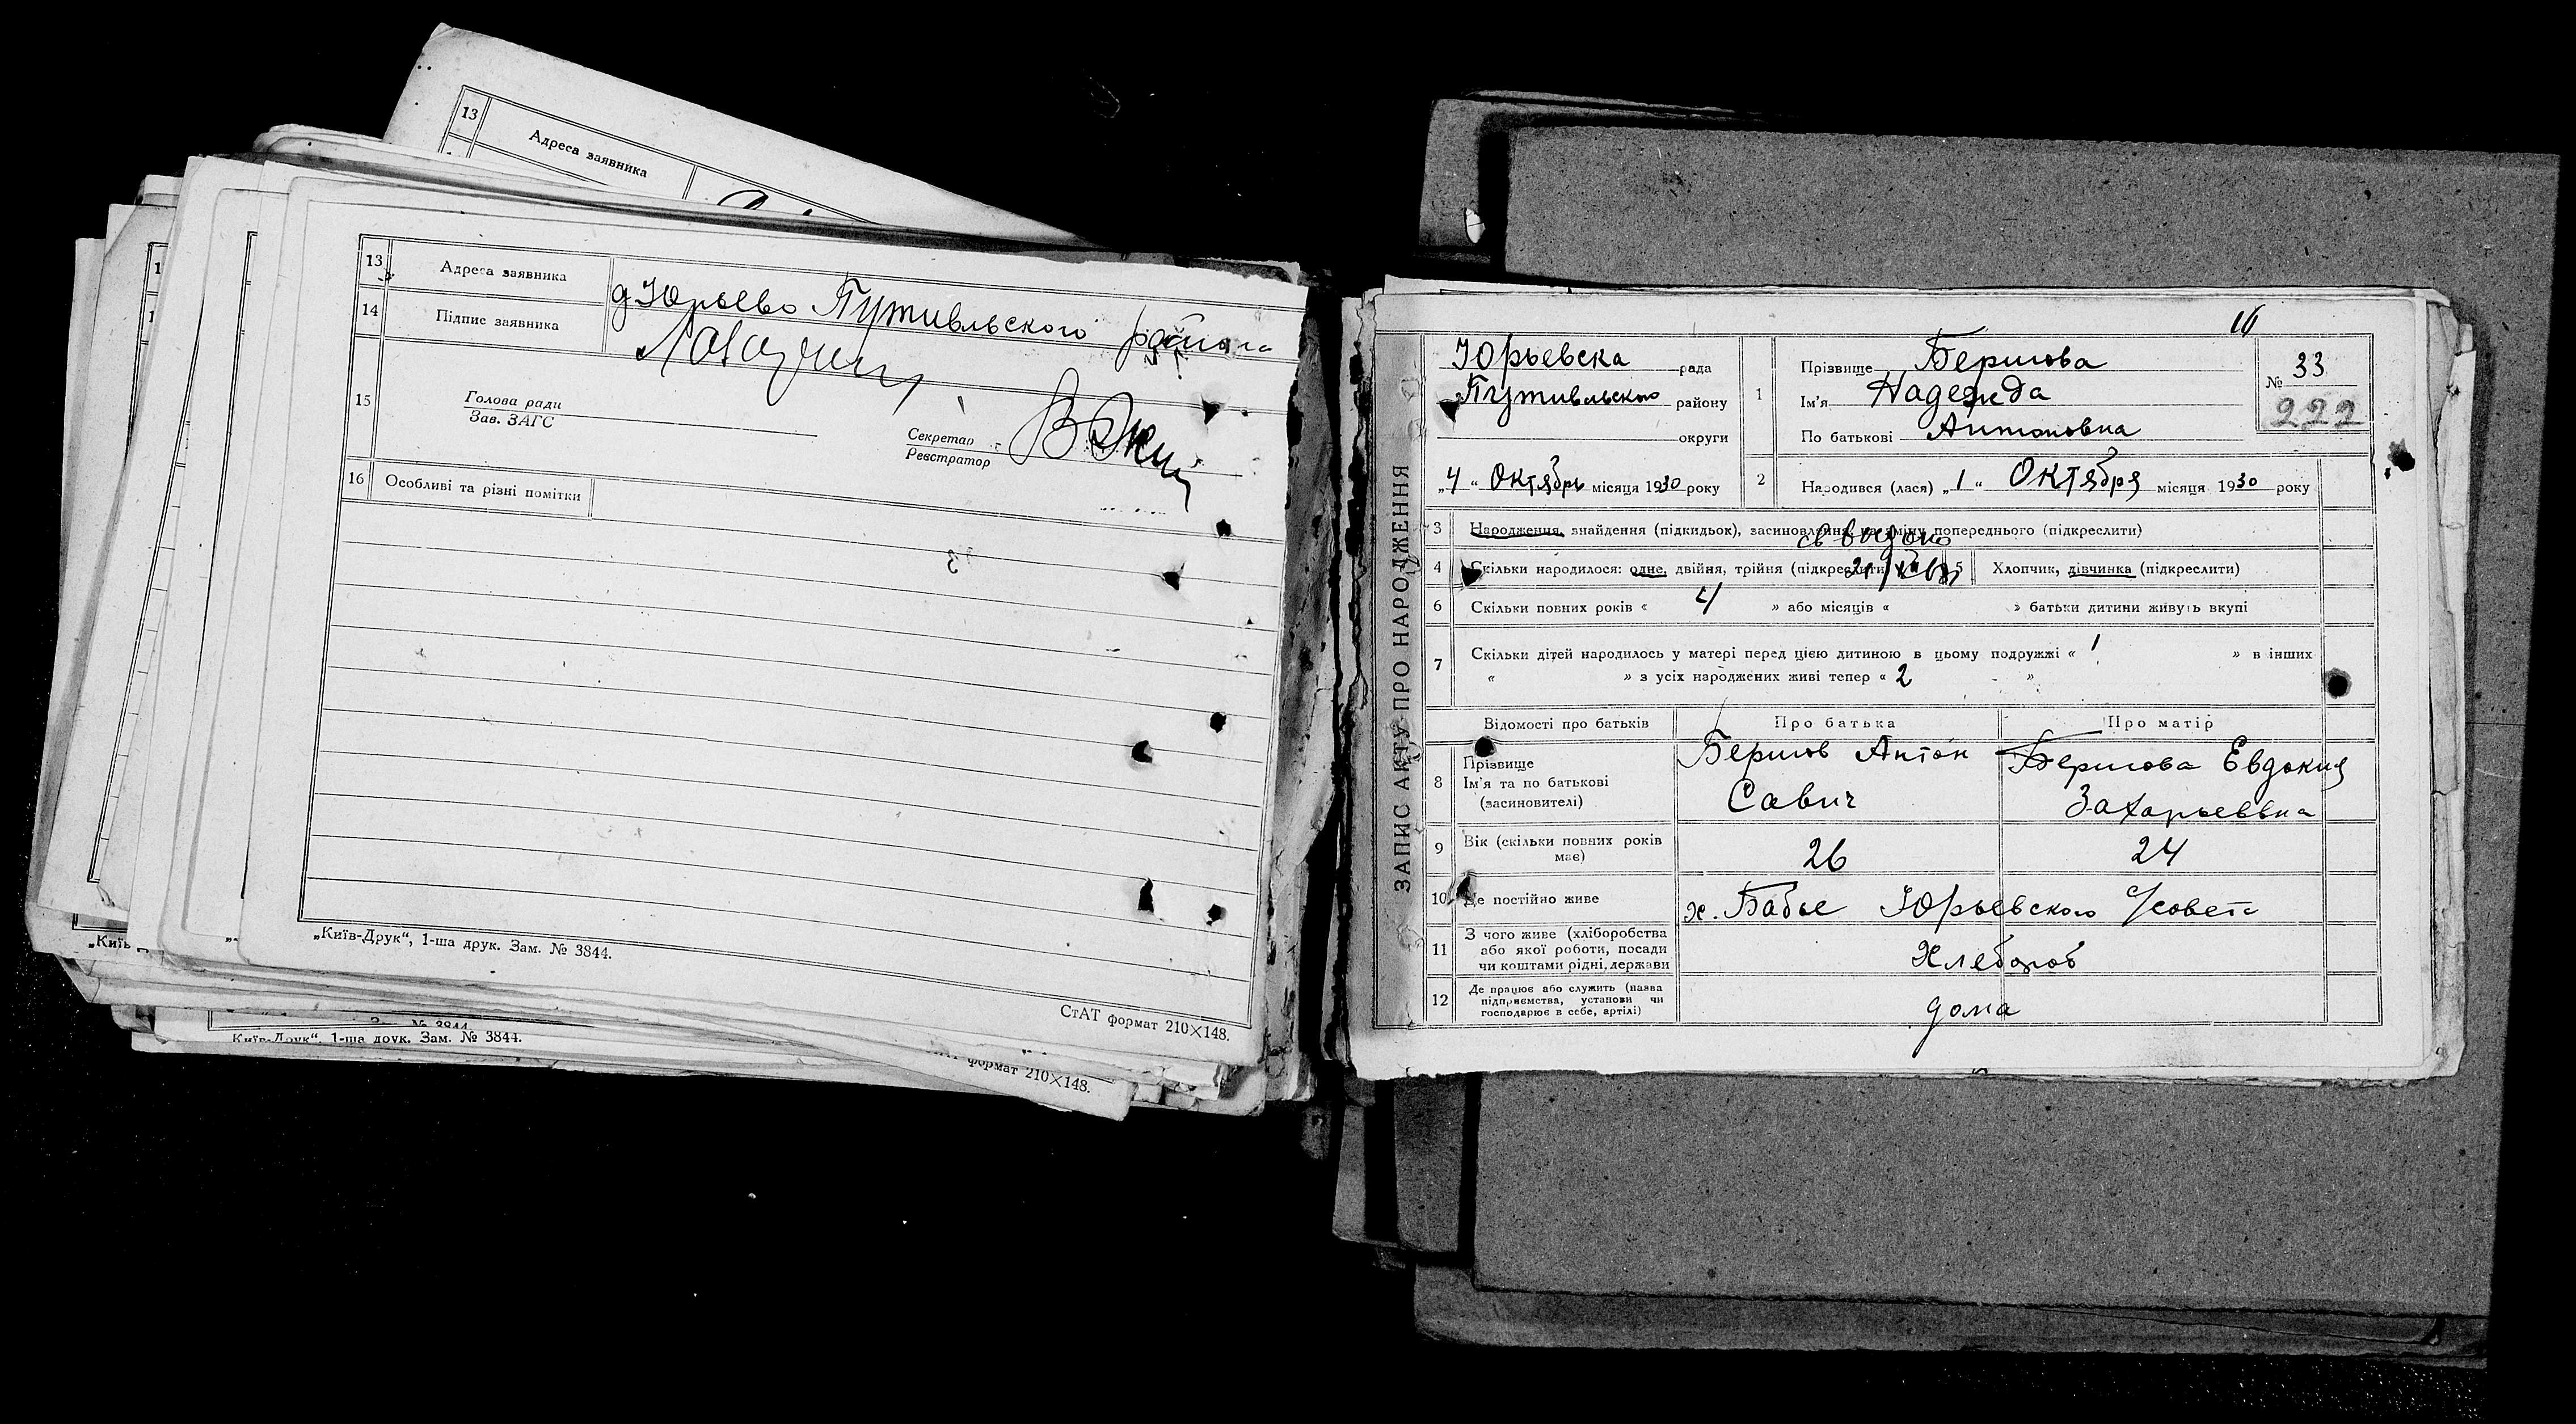 13 Адреса заявника
13 Адреса заявника д Юрьево Путивльского района
14 Підпис заявника
15 Голова ради
Зав. ЗАГС
Секретар
Реєстратор
16 Особливі та різні помітки
„Київ-Друк“, 1-ша друк. Зам. № 3844.
СтАТ формат 210×148.
„Київ
Зам. № 3844
Київ-Друк“, 1-ша друк. Зам. № 3844.
формат 210×148.
16
ЗАПИС АКТУ ПРО НАРОДЖЕННЯ
Юрьевска рада
Путивльского району
округи
„4“ Октябрь місяця 1930 року
1 Прізвище Бершова
Ім'я Надежда
По батькові Антоновна
№ 33
222
2 Народився (лася) „1“ Октября місяця 1930 року
3 Народження, знайдення (підкидьок), засиновлення, на зміну попереднього (підкреслити)
4 Скільки народилося: одне, двійня, трійня (підкреслити)
5 Хлопчик, дівчинка (підкреслити)
6 Скільки повних років « 4 » або місяців « » батьки дитини живуть вкупі
7 Скільки дітей народилось у матері перед цією дитиною в цьому подружжі « 1 » в інших
« » з усіх народжених живі тепер « 2 »
Відомості про батьків Про батька Про матір
8 Прізвище
Ім'я та по батькові
(засиновителі)
Бершов Антон
Савич
Бершова Евдокия
Захарьевна
9 Вік (скільки повних років
має)
26 24
10 Де постійно живе х. Бабье Юрьевского с/совета
11 З чого живе (хліборобства
або якої роботи, посади
чи коштами рідні, держави
Хлебороб
12 Де працює або служить (назва
підприємства, установи чи
господарює в себе, артілі)
дома